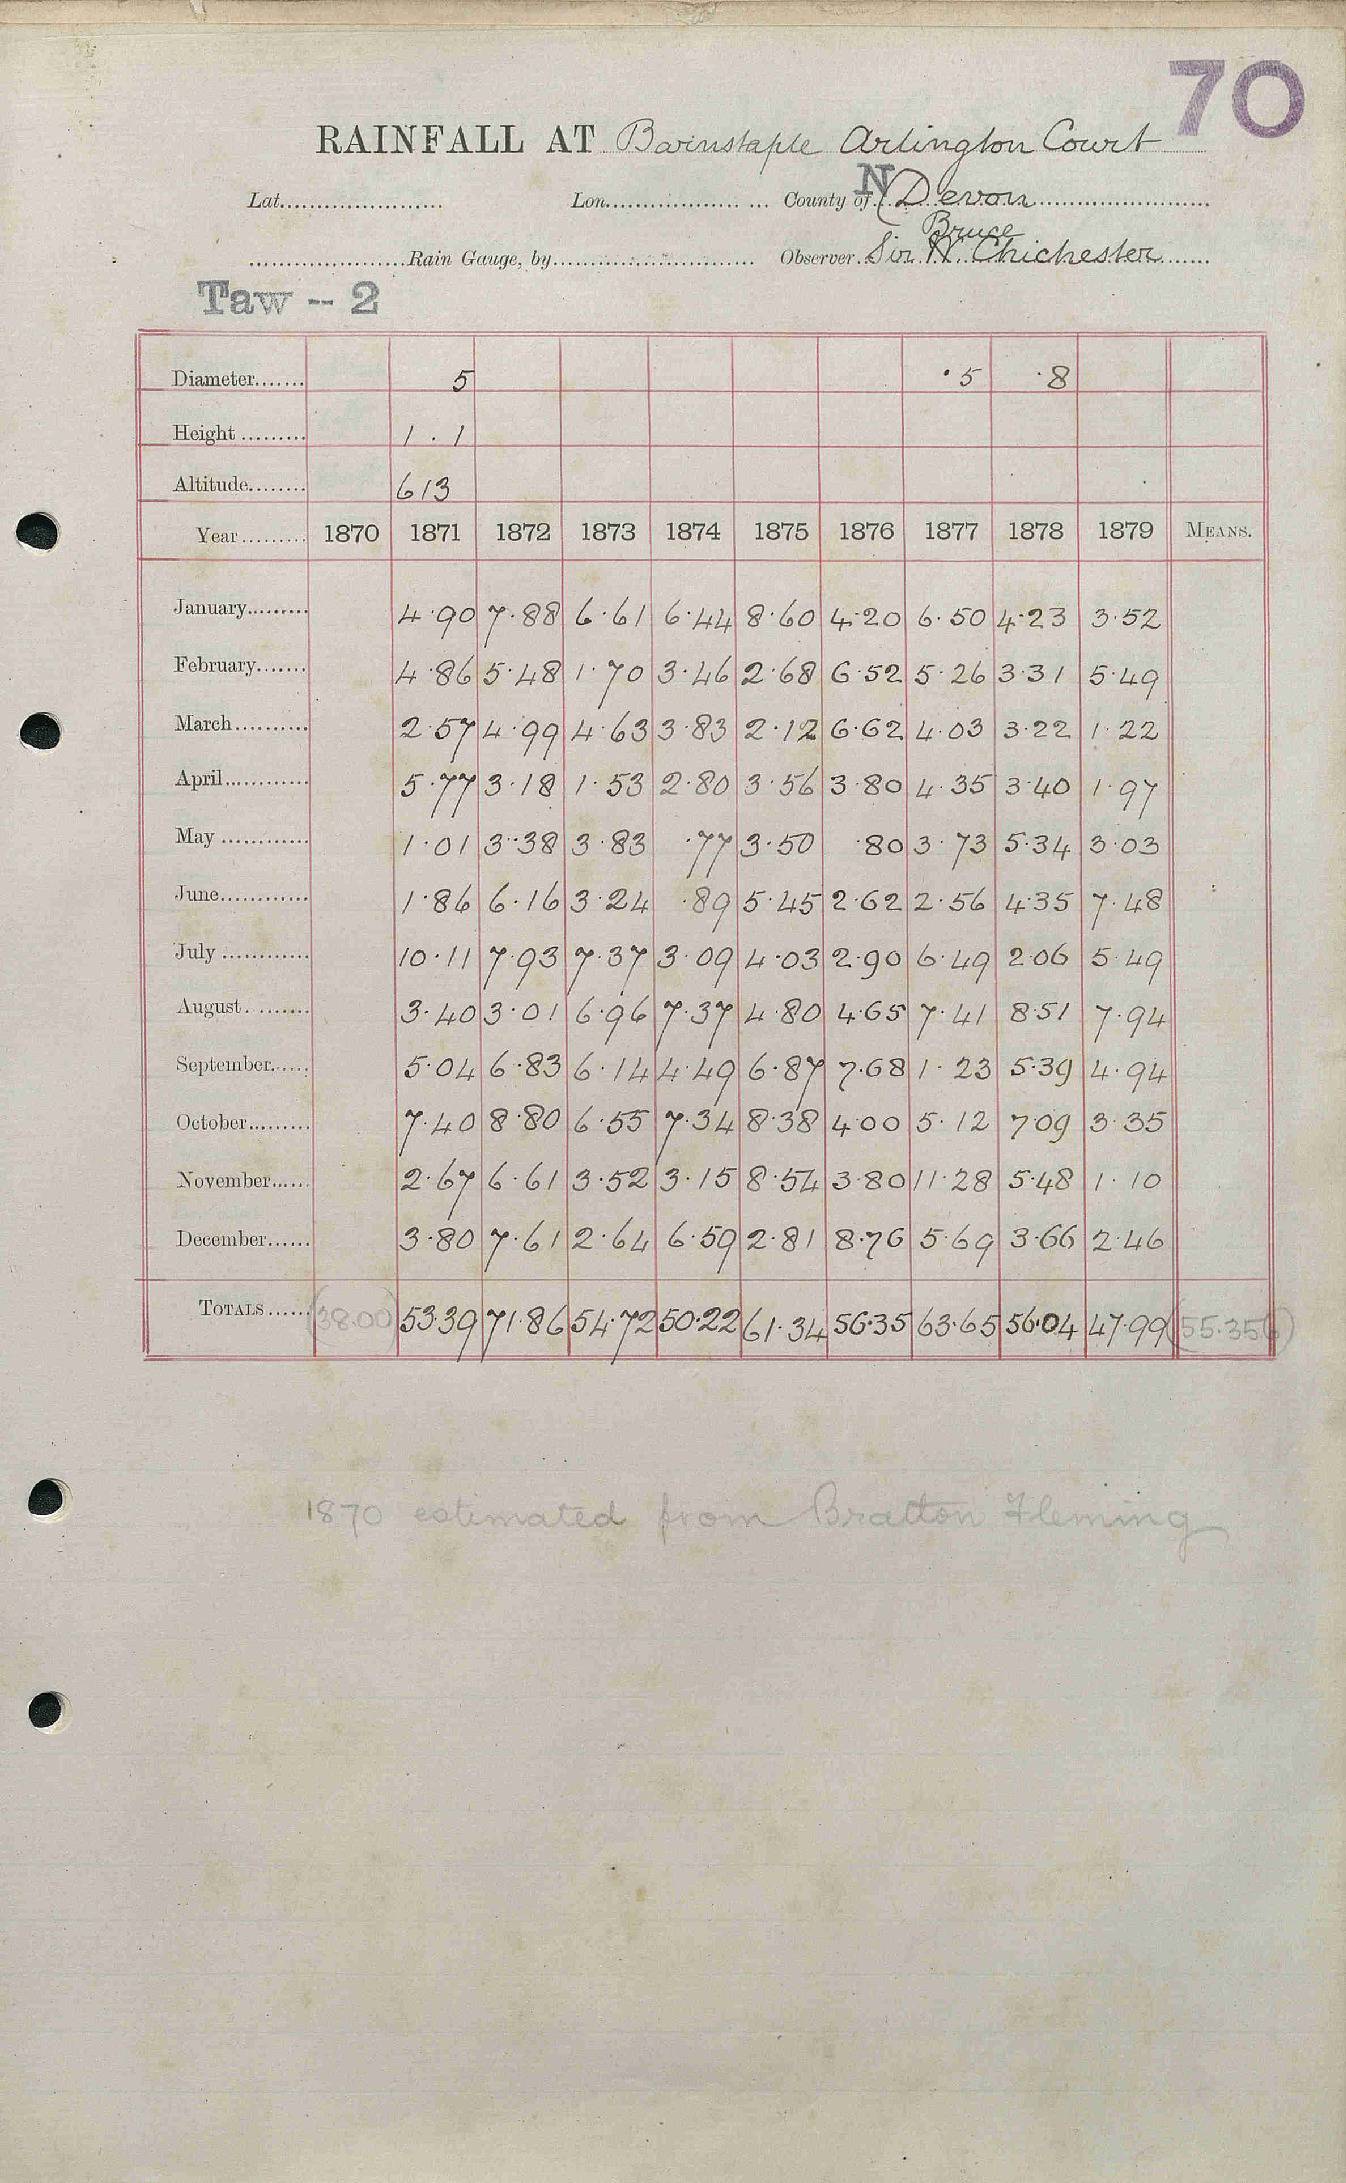 70
RAINFALL AT Barnstaple Arlington Court
Lat. Lon. County of N. Devon
Bruce
Rain Gauge, by Observer. Sir N. Chichester
Taw -- 2
Diameter 5 ·5 ·8
Height 1 . 1
Altitude 613
Year 1870 1871 1872 1873 1874 1875 1876 1877 1878 1879 MEANS.
January 4·90 7·88 6·61 6·44 8·60 4·20 6·50 4·23 3·52
February 4·86 5·48 1·70 3·46 2·68 6·52 5·26 3·31 5·49
March 2·57 4·99 4·63 3·83 2·12 6·62 4·03 3·22 1·22
April 5·77 3·18 1·53 2·80 3·56 3·80 4·35 3·40 1·97
May 1·01 3·38 3·83 ·77 3·50 ·80 3·73 5·34 3·03
June 1·86 6·16 3·24 ·89 5·45 2·62 2·56 4·35 7·48
July 10·11 7·93 7·37 3·09 4·03 2·90 6·49 2·06 5·49
August 3·40 3·01 6·96 7·37 4·80 4·65 7·41 8·51 7·94
September 5·04 6·83 6·14 4·49 6·87 7·68 1·23 5·39 4·94
October 7·40 8·80 6·55 7·34 8·38 4·00 5·12 7·09 3·35
November 2·67 6·61 3·52 3·15 8·54 3·80 11·28 5·48 1·10
December 3·80 7·61 2·64 6·59 2·81 8·76 5·69 3·66 2·46
TOTALS (38.00) 53·39 71·86 54·72 50·22 61·34 56·35 63·65 56·04 47·99 (55.356)
1870 estimated from Bratton Fleming